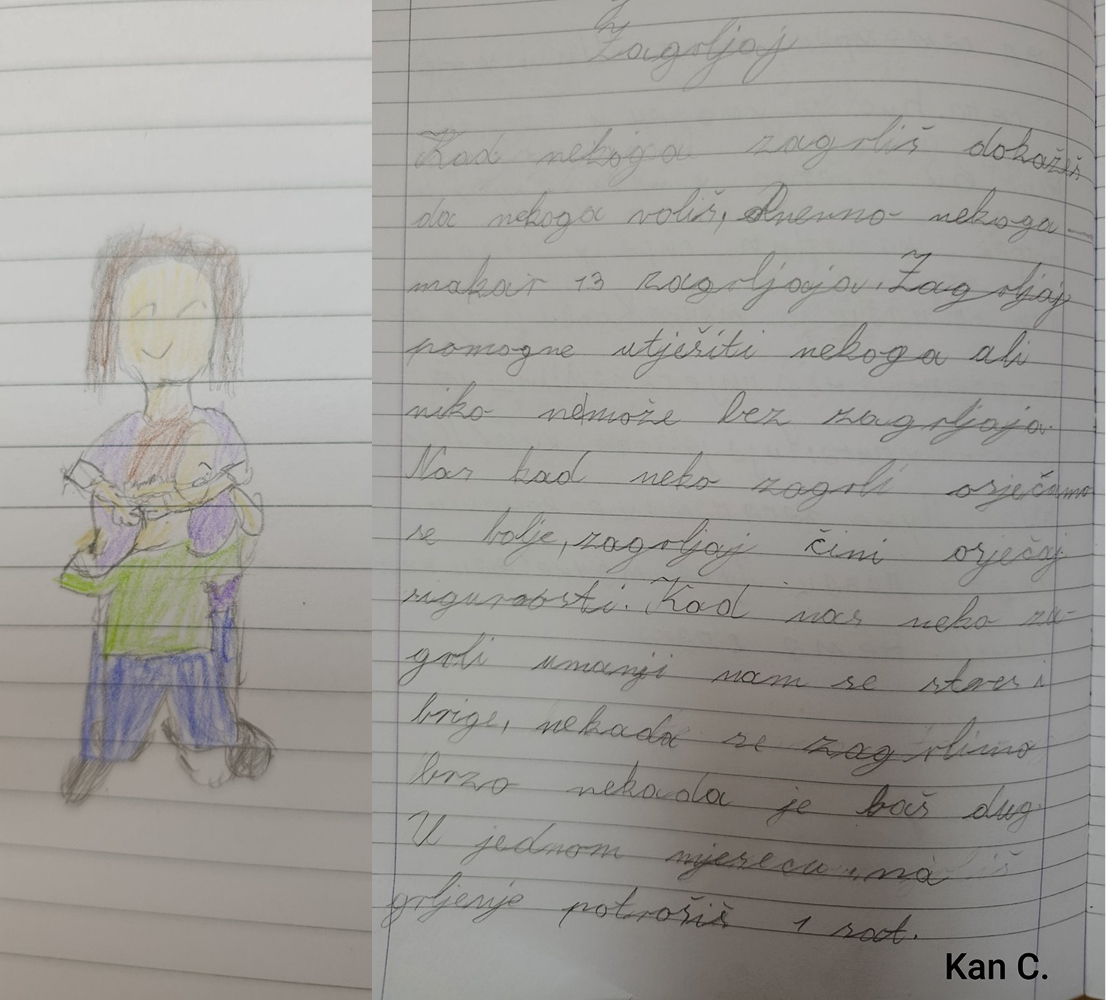 Zagrljaj
Kad nekoga zagrliš dokažeš
da nekoga voliš, Dnevno nekoga
makar 13 zagrljaja. Zagrljaj
pomogne utješiti nekoga ali
niko nemože bez zagrljaja.
Nas kad neko zagrli osjećamo
se bolje, zagrljaj čini osjećaj
sigurnosti. Kad nas neko za-
grli umanji nam se stres i
brige, nekada se zagrlimo
brzo nekada je baš dug
U jednom mjesecu, na
grljenje potrošiš 1 sat.
Kan C.